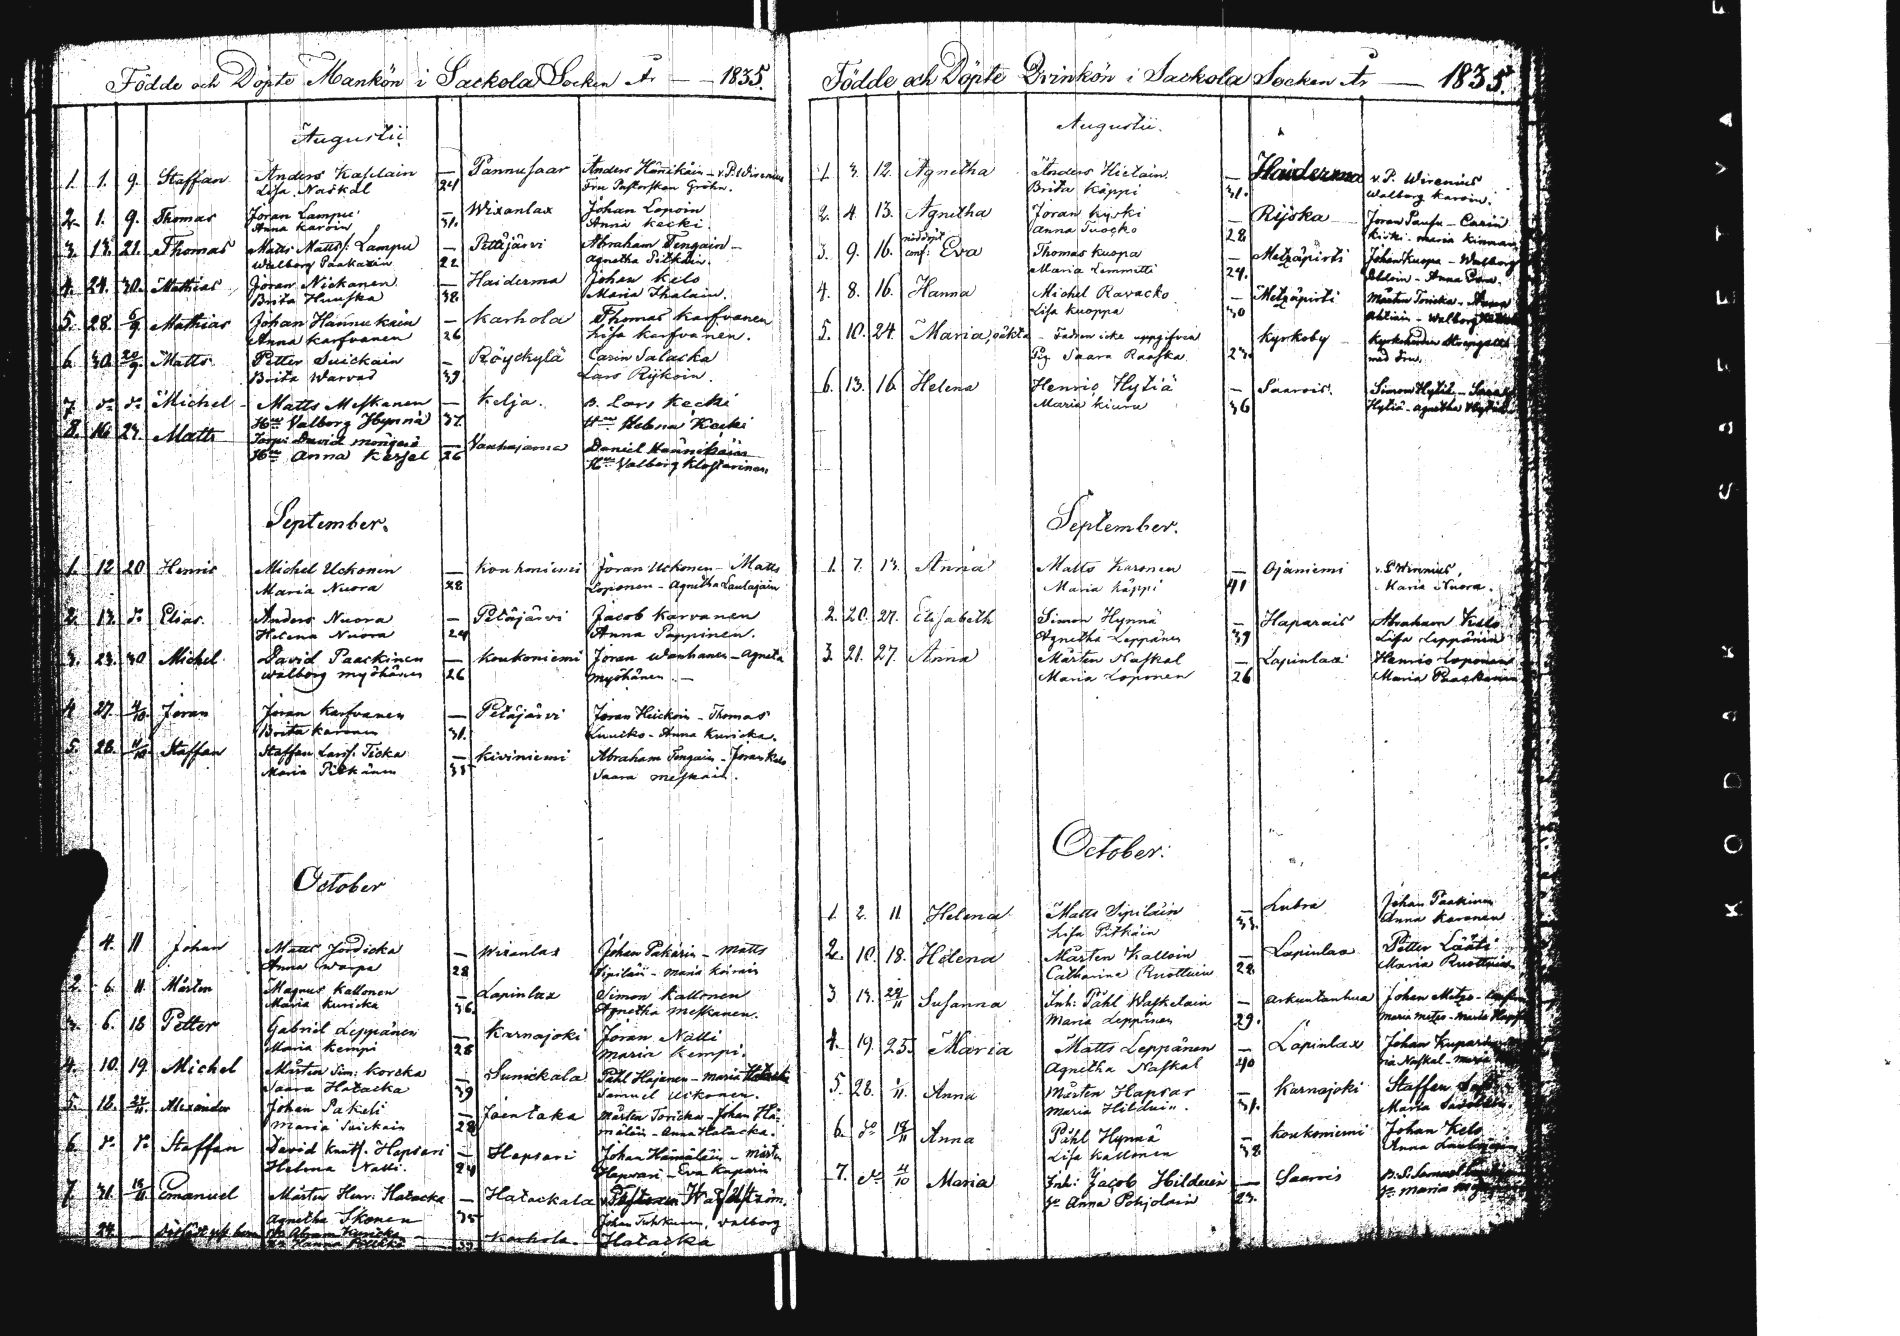 Födde och Döpte Mankön i Sackola Socken År — 1835.
Augustii.
1. 1. 9. Staffan Anders Kaslain — Pannusaar Anders Hänikäin - v.P. Wirenius
Lisa Naskal 24 Fru Grøhn.
2. 1. 9. Thomas Jöran Lampu — Wixanlax Johan Lopoin
Anna Karoin 31. Anna Kecki
3. 13. 21. Thomas Matts Matts: Lampu — Petäjärvi Abraham Tengain -
Walborg Paakarin 22 Agnetha Pitkäin.
4. 24. 30. Mathias Jöran Nickanen — Haiderma Johan Kelo
Brita Huuska 38. Maria Ihalain.
5. 28. 6/9 Mathias Johan Hannukain — Karhola Thomas Karfvanen
Anna Karfvanen 26 Lisa Karfvanen.
6. 30. 20/9 Matts Petter Suickain — Röyckylä Carin Salacka
Brita Warvas 39 Lars Rijkoin.
7. do do Michel Matts Meskanen — Kelja. B. Lars Kecki
Hu Valborg Hynnä 37. Hu Helena Kecki
8. 16 23. Matts David — Daniel Hännikäin
Hu Anna 26 Hu Valborg
September.
1. 12 20 Henric Michel Uckonen — Koukoniemi Jöran Uckonen - Matts
Maria Nuora 28 Loponen - Agnetha Laulajain
2. 13. do Elias. Anders Nuora — Petäjärvi Jacob Karvanen
Helena Nuora 24 Anna Pappinen.
3. 23. 30 Michel David Paackinen — Koukoniemi Jöran Wanhanen - Agneta
Walborg Myöhänen 26 Myöhänen.
4 27. 4/10 Jöran Jöran Karfvanen — Petäjärvi Jöran Huickoin - Thomas
Brita Karonen 31. Anna Kuricka.
5. 28. 11/10 Staffan Staffan Larsf. Ticka — Kiviniemi Abraham Tengain - Jöran Kelo
Maria Pitkänen 33 Saara Meskail.
October
4. 11 Johan Matts Jordicka — Wixanlax Johan Pakarin - Matts
Anna Warpa 28 Sipiläi - Maria Koirain
2. 6. 11. Mårten Magnus Kallonen — Lapinlax Simon Kallonen
Maria Kuricka 36. Agnetha Meskanen.
3. 6. 18 Petter Gabriel Leppänen — Karnajoki Jöran Nalli
Maria Kempi 28 Maria Kempi.
4. 10. 19. Michel Mårten Sim: Korcka — Sunickala Påhl Hajanen - Maria Hatacka
Saara Hatacka 39 Samuel Uckonen.
5. 18. Alexander Johan Pakeli — Joentaka Mårten Toricka - Johan Hä-
Maria Suickain 28 mäläin - Anna Hatacka.
6. do do Staffan David Knutf. Hapsari — Hapsari Johan Hämäläin - Mårten
Helena Nalli. 24 Hapsari - Eva Kuparin
7. 31. Emanuel Mårten Henr: Hatacka — Hatackala
Agnetha Ikonen 35 Johan Valborg
24. Abram Kuricka — Karhola. Hatacka
Födde och Döpte Qvinkön i Sackola Socken År — 1835.
Augustii.
1. 3. 12. Agnetha Anders Hietäin — Haiderma v.P. Wirenius
Brita Käppi 31. Walborg Karoin.
2. 4. 13. Agnetha Jöran Kyrki — Rijska Jöran Pausu - Carin
Anna Tuocko 28 Kiiki. Maria Kinnain
3. 9. 16. nöddöpt conf: Eva Thomas Kuopa — Metzäpirti Johan Kuopa - Walborg
Maria Lemmitti 24. Ahtoin - Anna
4. 8. 16. Hanna Michel Ravacko — Metzäpirti Mårten Toricka - Anna
Lisa Kuoppa 30 Ahtiain - Walborg
5. 10. 24. Maria, oäkta - Fadren icke uppgifven Kyrkoby
Pig. Saara Raaska 23. med Fru.
6. 13. 16. Helena Henric Hytiä — Saarois. Simon Hytiä - Saara
Maria Kiuru 36 Hytiä - Agnetha Hytiä
September.
1. 7. 13. Anna Matts Karonen — Ojaniemi v.P. Wirenius,
Maria Käppi 41 Maria Nuora.
2. 20. 27. Elisabeth Simon Hynnä — Haparais Abraham Kelo
Agnetha Leppänen 39 Lisa Leppänen
3. 21. 27. Anna Mårten Naskal — Lapinlax Henric Loponen
Maria Loponen 26 Maria Paaskanen
October.
1. 2. 11. Helena Matts Sipiläin — Lubra Johan Paakinen
Lisa Pitkäin 33. Anna Karanen
2. 10. 18. Helena Mårten Kalloin — Lapinlax Petter Lääti
Catharina Ruottuin 28. Maria Ruottuin
3 13. 24/11 Susanna Inh: Påhl Waskelain — Arkuntanhua Johan Metzo -
Maria Leppänen 29. Maria Metzo - Maria
4. 19. 25. Maria Matts Leppänen — Lapinlax Johan Kuparin
Agnetha Naskal 40 Naskal - Maria
5. 28. 1/11 Anna Mårten Hapsar — Karnajoki Staffan
Maria Hilduin. 31. Maria
6. do 18/11 Anna Påhl Hynnä — Koukoniemi Johan Kelo
Lisa Kallonen 38 Anna
7. do 4/10 Maria Inh: Jacob Hilduin — Saarois
Anna Pohjolain 23. Maria
KODAK SAFETY F